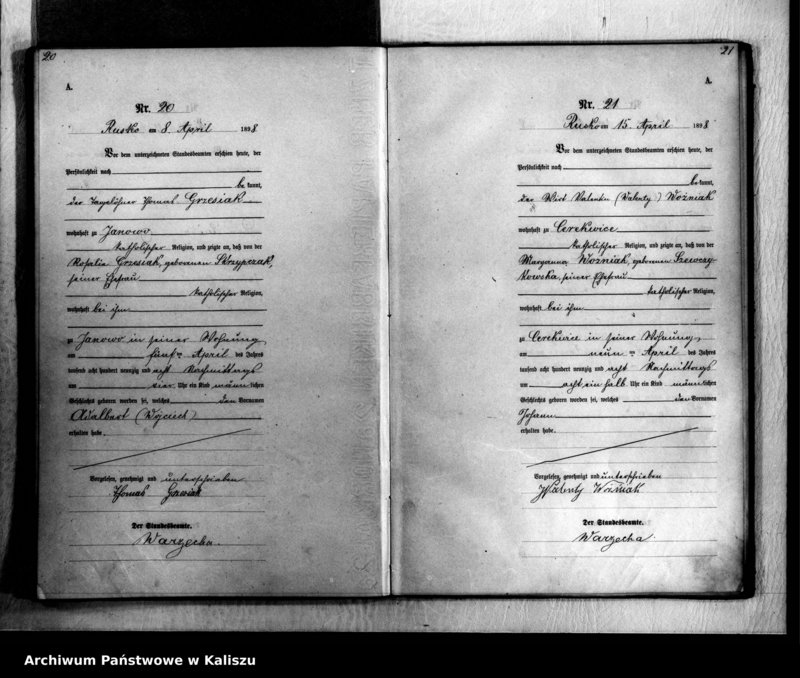 20
A.
Nr. 20
Rusko am 8. April 1898
Vor dem unterzeichneten Standesbeamten erschien heute, der
Persönlichkeit nach
be kannt,
der Tagelöhner Thomas Grzesiak
wohnhaft zu Janowo
katholischer Religion, und zeigte an, daß von der
Rosalie Grzesiak, geborenen Skrzypczak,
seiner Ehefrau
katholischer Religion,
wohnhaft bei ihm
zu Janowo in seiner Wohnung,
am fünften April des Jahres
tausend acht hundert neunzig und acht Nachmittags
um vier Uhr ein Kind männlichen
Geschlechts geboren worden sei, welches den Vornamen
Adalbert (Wojciech)
erhalten habe.
Vorgelesen, genehmigt und unterschrieben
Thomas Grzesiak
Der Standesbeamte.
Warzecha.
21
A.
Nr. 21
Rusko am 15. April 1898
Vor dem unterzeichneten Standesbeamten erschien heute, der
Persönlichkeit nach
be kannt,
der Wirt Valentin (Walenty) Wozniak
wohnhaft zu Cerekwice
katholischer Religion, und zeigte an, daß von der
Maryanna Wozniak, geborenen Szewczy-
kowska, seiner Ehefrau
katholischer Religion,
wohnhaft bei ihm
zu Cerekwice in seiner Wohnung,
am neunten April des Jahres
tausend acht hundert neunzig und acht Nachmittags
um acht ein halb Uhr ein Kind männlichen
Geschlechts geboren worden sei, welches den Vornamen
Johann
erhalten habe.
Vorgelesen, genehmigt und unterschrieben
Walenty Woźniak
Der Standesbeamte.
Warzecha.
Archiwum Państwowe w Kaliszu